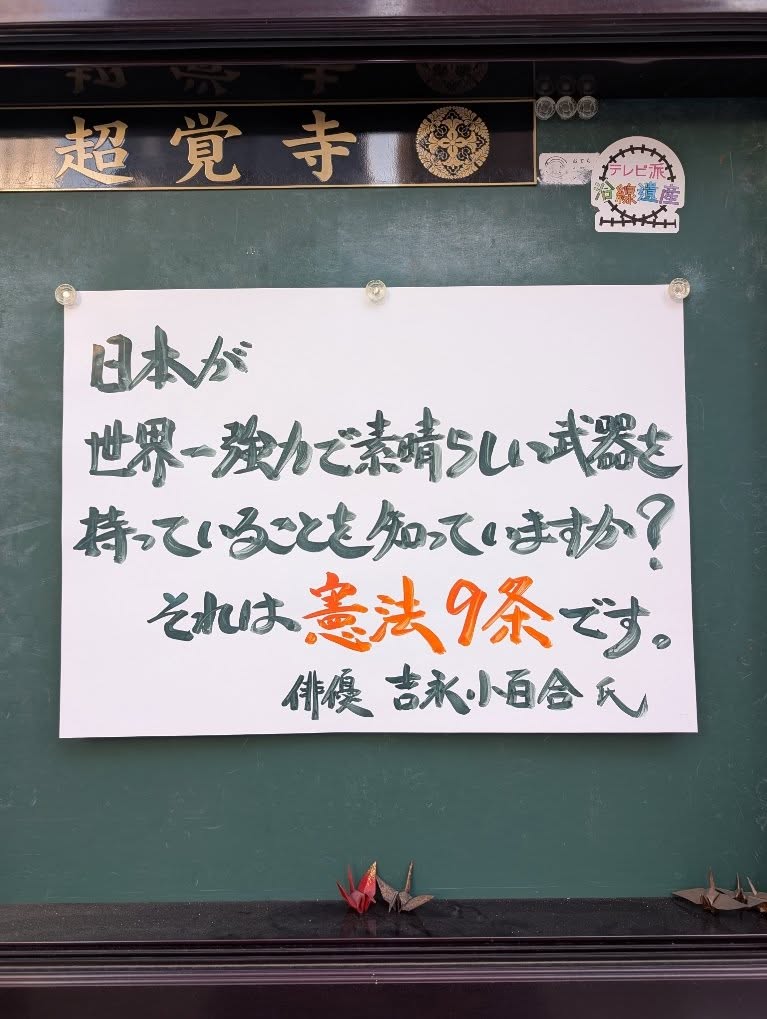 超覚寺
テレビ派
沿線遺産
日本が
世界一強力で素晴らしい武器を
持っていることを知っていますか?
それは憲法9条です。
俳優 吉永小百合 氏